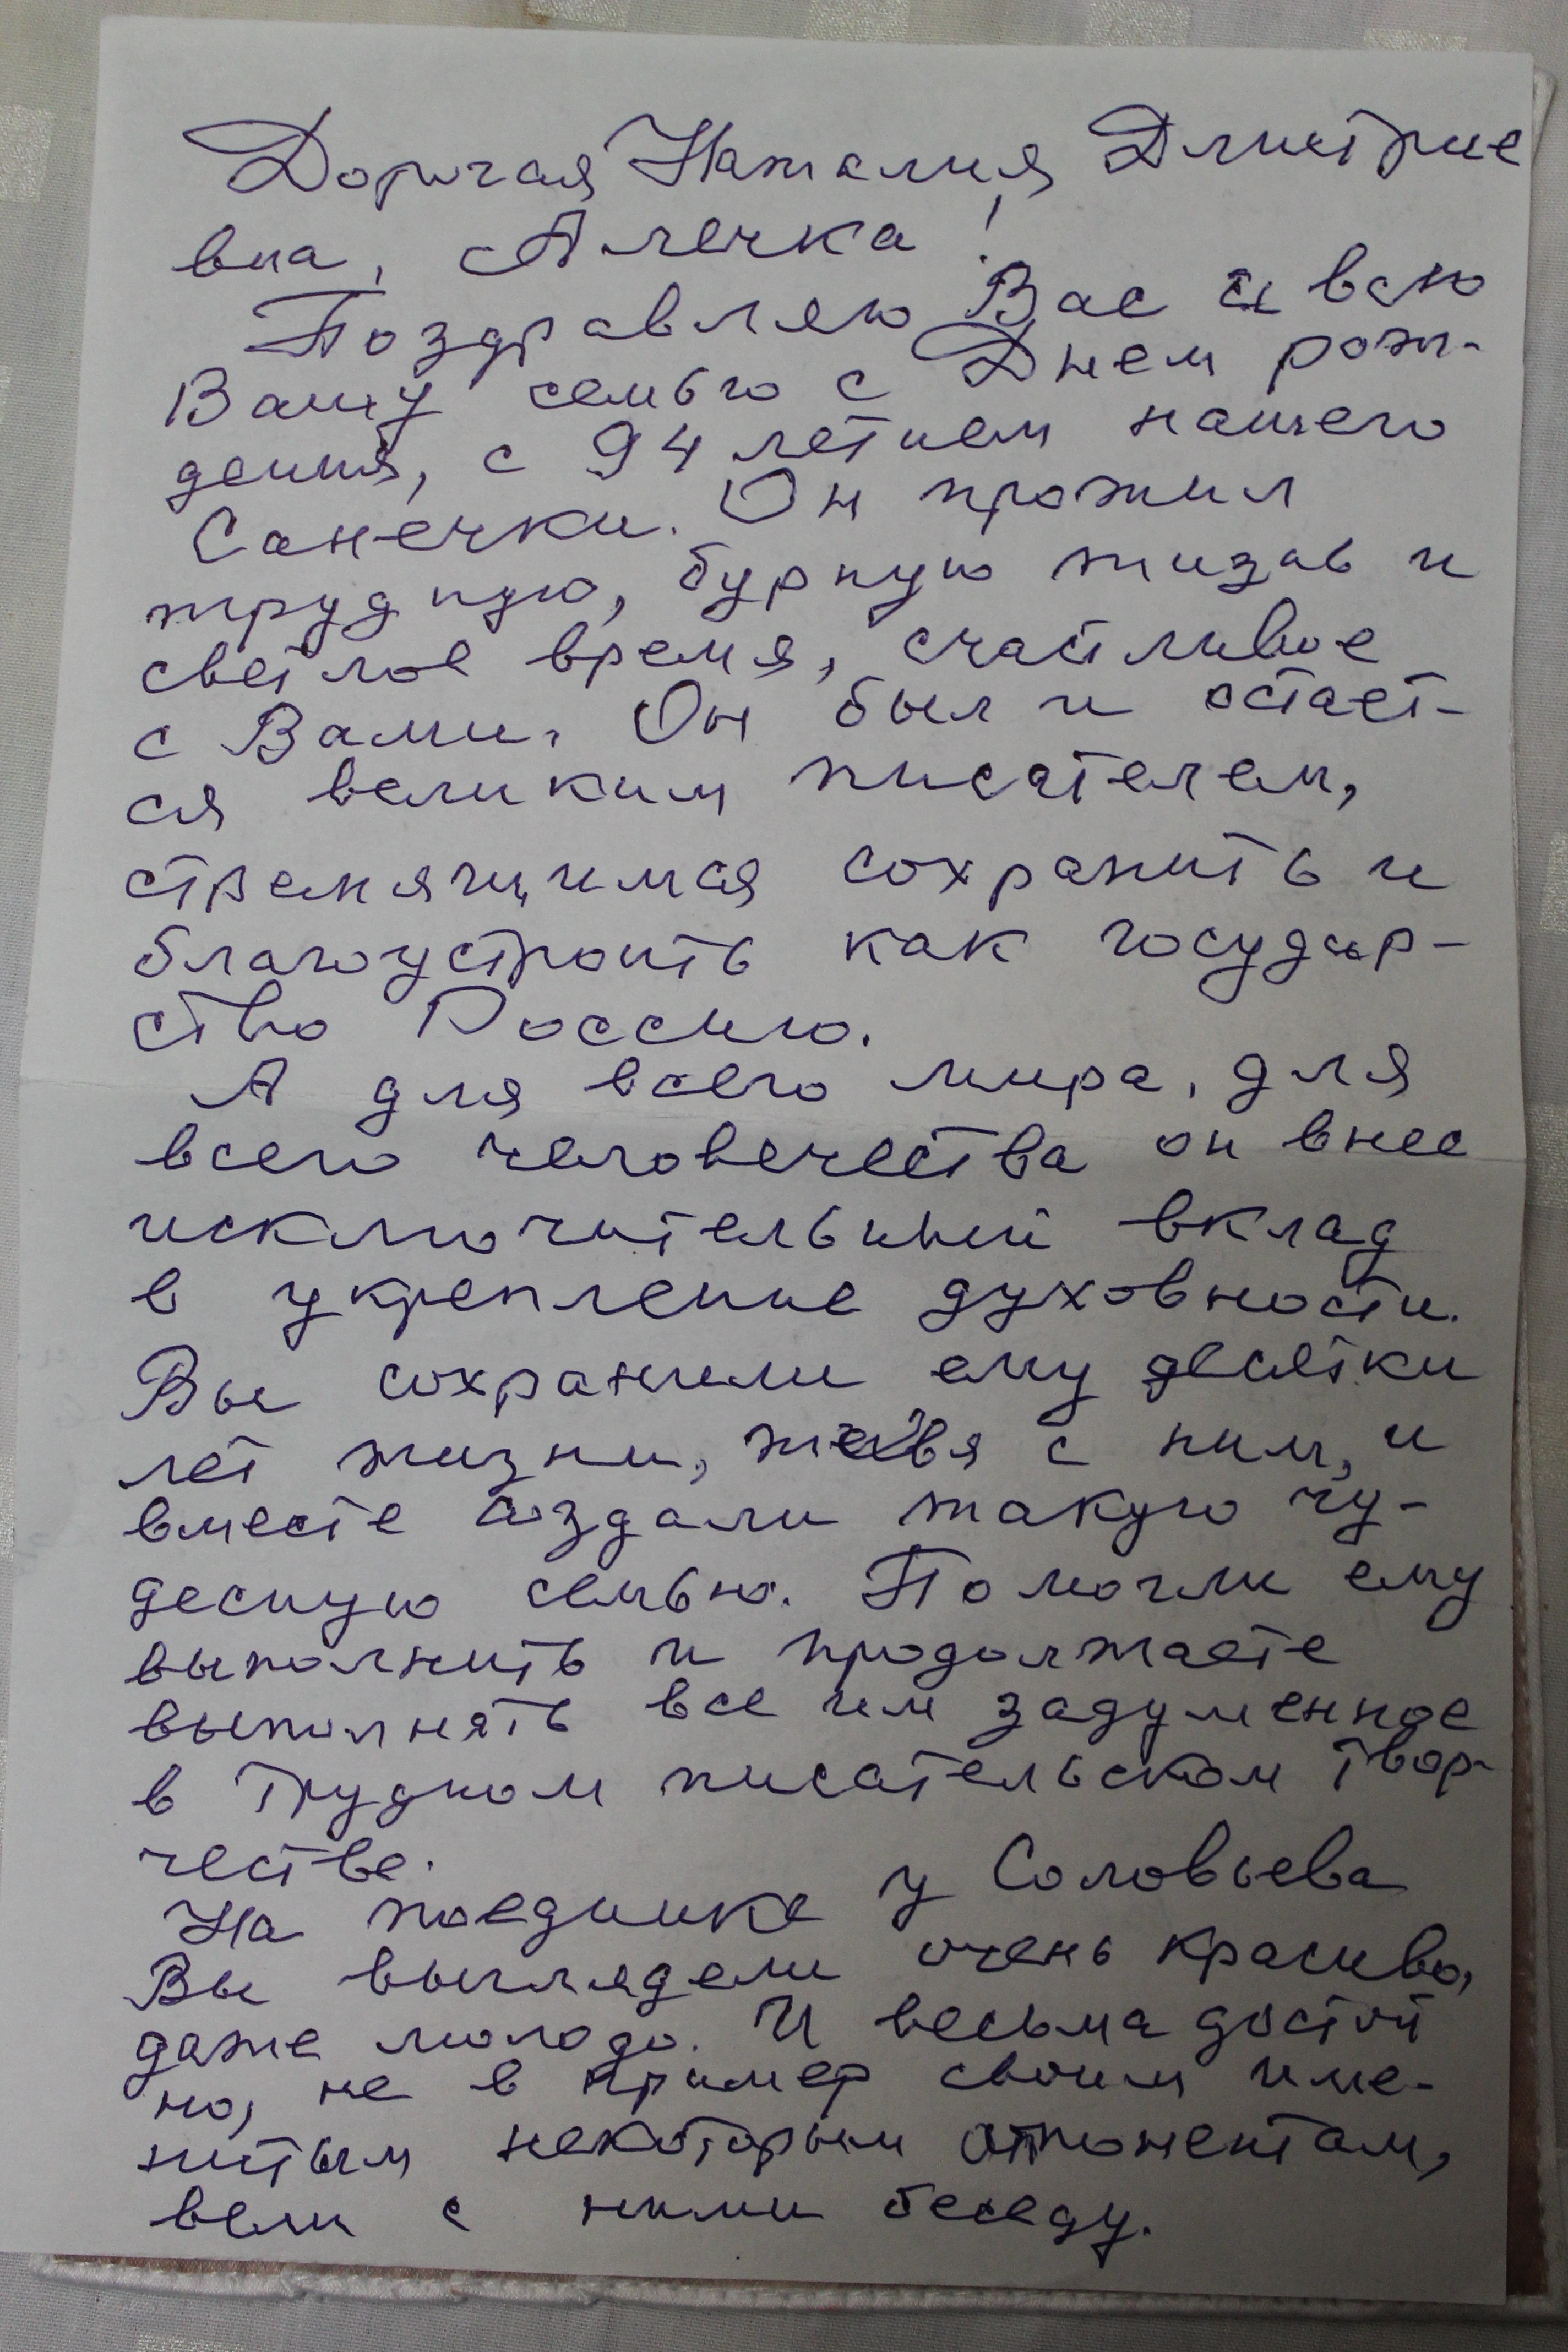 Дорогая Наталия Дмитрие
вна, Алечка!
Поздравляю Вас и всю
Вашу семью с Днем рож-
дения, с 94 летием нашего
Санечки. Он прожил
трудную, бурную жизнь и
светлое время, счастливое
с Вами. Он был и остает-
ся великим писателем,
стремящимся сохранить и
благоустроить как государ-
ство Россию.
А для всего мира, для
всего человечества он внес
исключительный вклад
в укрепление духовности.
Вы сохранили ему десятки
лет жизни, живя с ним, и
вместе создали такую чу-
десную семью. Помогли ему
выполнить и продолжаете
выполнять все им задуманное
в трудном писательском твор-
честве.
На поединке у Соловьева
Вы выглядели очень красиво,
даже молодо. И весьма достой
но, не в пример своим име-
нитым некоторым оппонентам,
вели с ними беседу.